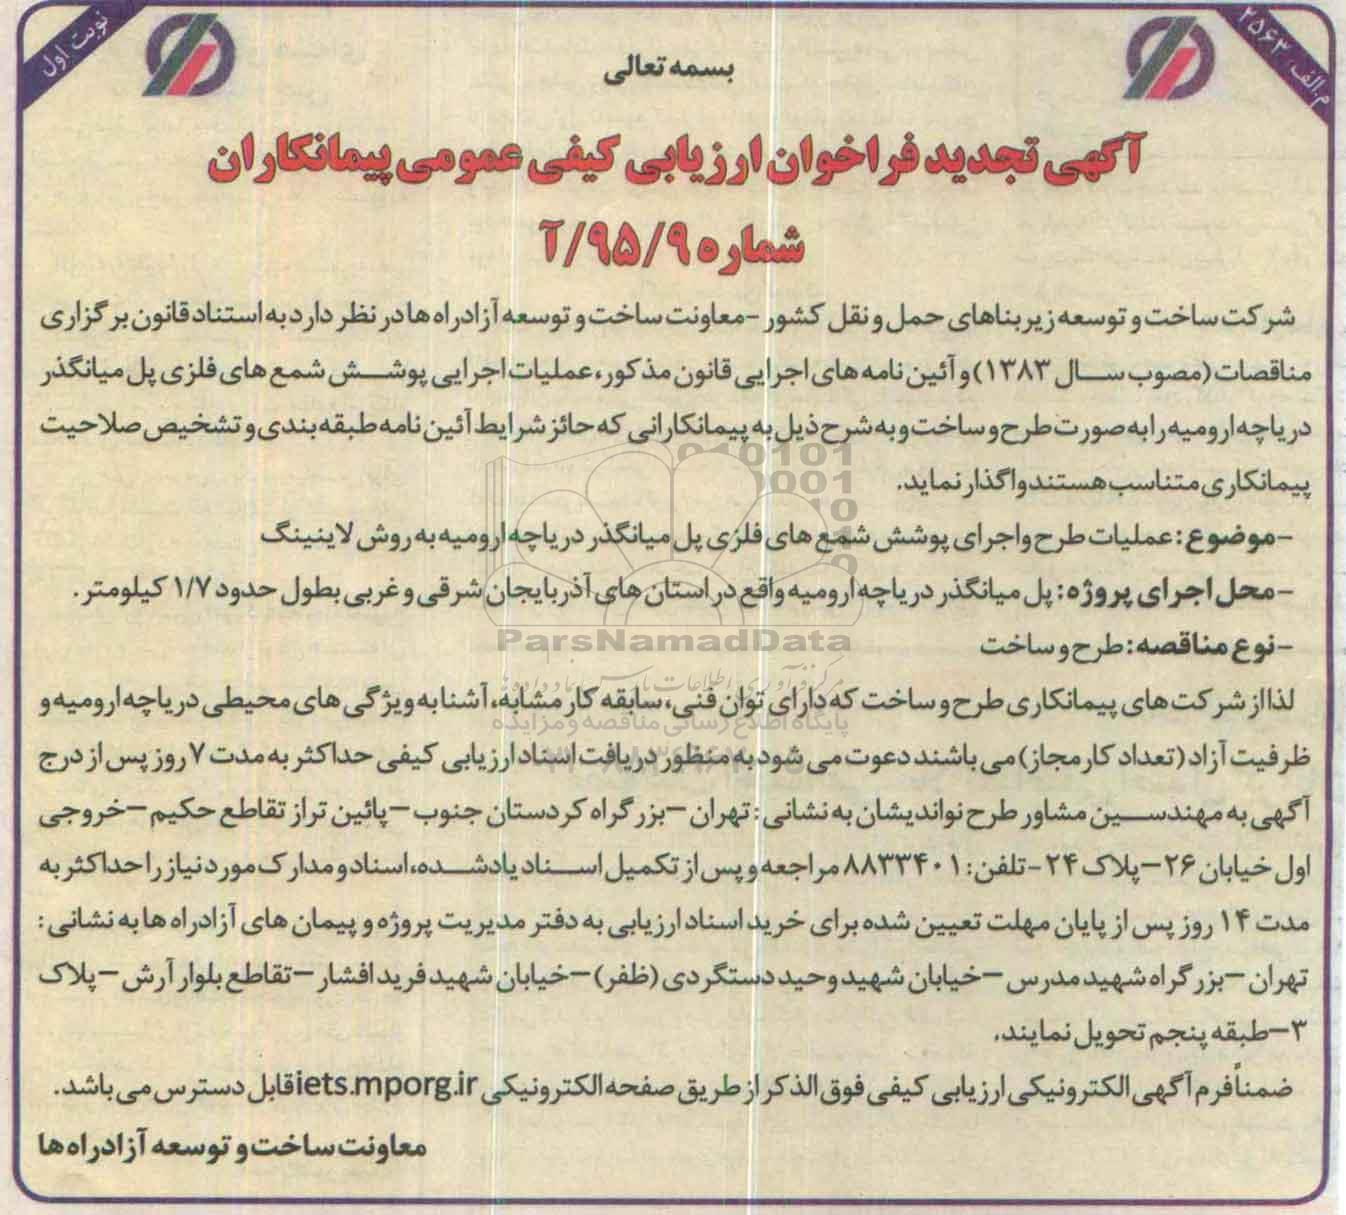 نوبت اول
م.الف ۲۵۶۳
بسمه تعالی
آگهی تجدید فراخوان ارزیابی کیفی عمومی پیمانکاران
شماره ۹/۹۵/آ
شرکت ساخت و توسعه زیربناهای حمل و نقل کشور -معاونت ساخت و توسعه آزادراه ها در نظر دارد به استناد قانون برگزاری
مناقصات (مصوب سال ۱۳۸۳) و آئین نامه های اجرایی قانون مذکور، عملیات اجرایی پوشش شمع های فلزی پل میانگذر
دریاچه ارومیه را به صورت طرح و ساخت و به شرح ذیل به پیمانکارانی که حائز شرایط آئین نامه طبقه بندی و تشخیص صلاحیت
پیمانکاری متناسب هستند واگذار نماید.
-موضوع: عملیات طرح و اجرای پوشش شمع های فلزی پل میانگذر دریاچه ارومیه به روش لاینینگ
-محل اجرای پروژه: پل میانگذر دریاچه ارومیه واقع در استان های آذربایجان شرقی و غربی بطول حدود ۱/۷ کیلومتر.
-نوع مناقصه: طرح و ساخت
لذا از شرکت های پیمانکاری طرح و ساخت که دارای توان فنی، سابقه کار مشابه، آشنا به ویژگی های محیطی دریاچه ارومیه و
ظرفیت آزاد (تعداد کار مجاز) می باشند دعوت می شود به منظور دریافت اسناد ارزیابی کیفی حداکثر به مدت ۷ روز پس از درج
آگهی به مهندسین مشاور طرح نواندیشان به نشانی: تهران –بزرگراه کردستان جنوب –پائین تر از تقاطع حکیم –خروجی
اول خیابان ۲۶ –پلاک ۲۴ -تلفن: ۸۸۳۳۴۰۱ مراجعه و پس از تکمیل اسناد یاد شده، اسناد و مدارک مورد نیاز را حداکثر به
مدت ۱۴ روز پس از پایان مهلت تعیین شده برای خرید اسناد ارزیابی به دفتر مدیریت پروژه و پیمان های آزادراه ها به نشانی:
تهران –بزرگراه شهید مدرس –خیابان شهید وحید دستگردی (ظفر) –خیابان شهید فرید افشار –تقاطع بلوار آرش –پلاک
۳ –طبقه پنجم تحویل نمایند.
ضمناً فرم آگهی الکترونیکی ارزیابی کیفی فوق الذکر از طریق صفحه الکترونیکی iets.mporg.ir قابل دسترس می باشد.
معاونت ساخت و توسعه آزادراه ها
ParsNamadData
پایگاه اطلاع رسانی مناقصه و مزایده